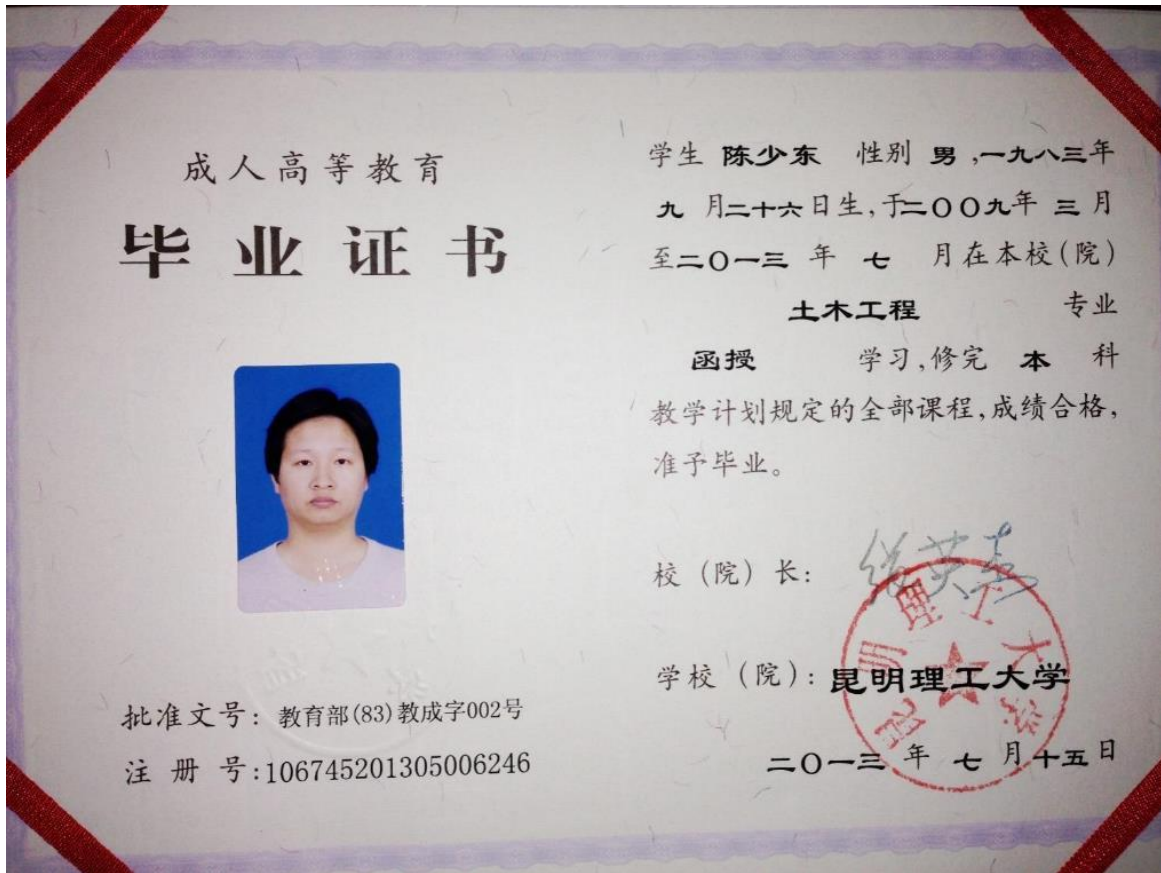 成人高等教育
毕业证书
批准文号：教育部(83)教成字002号
注册号:106745201305006246
学生 陈少东 性别 男,一九八三年
九月二十六日生,于二〇〇九年三月
至二〇一三年七月在本校(院)
土木工程 专业
函授 学习,修完 本 科
教学计划规定的全部课程,成绩合格,
准予毕业。
校（院）长：
学校（院）：昆明理工大学
昆明理工大学
二〇一三年七月十五日